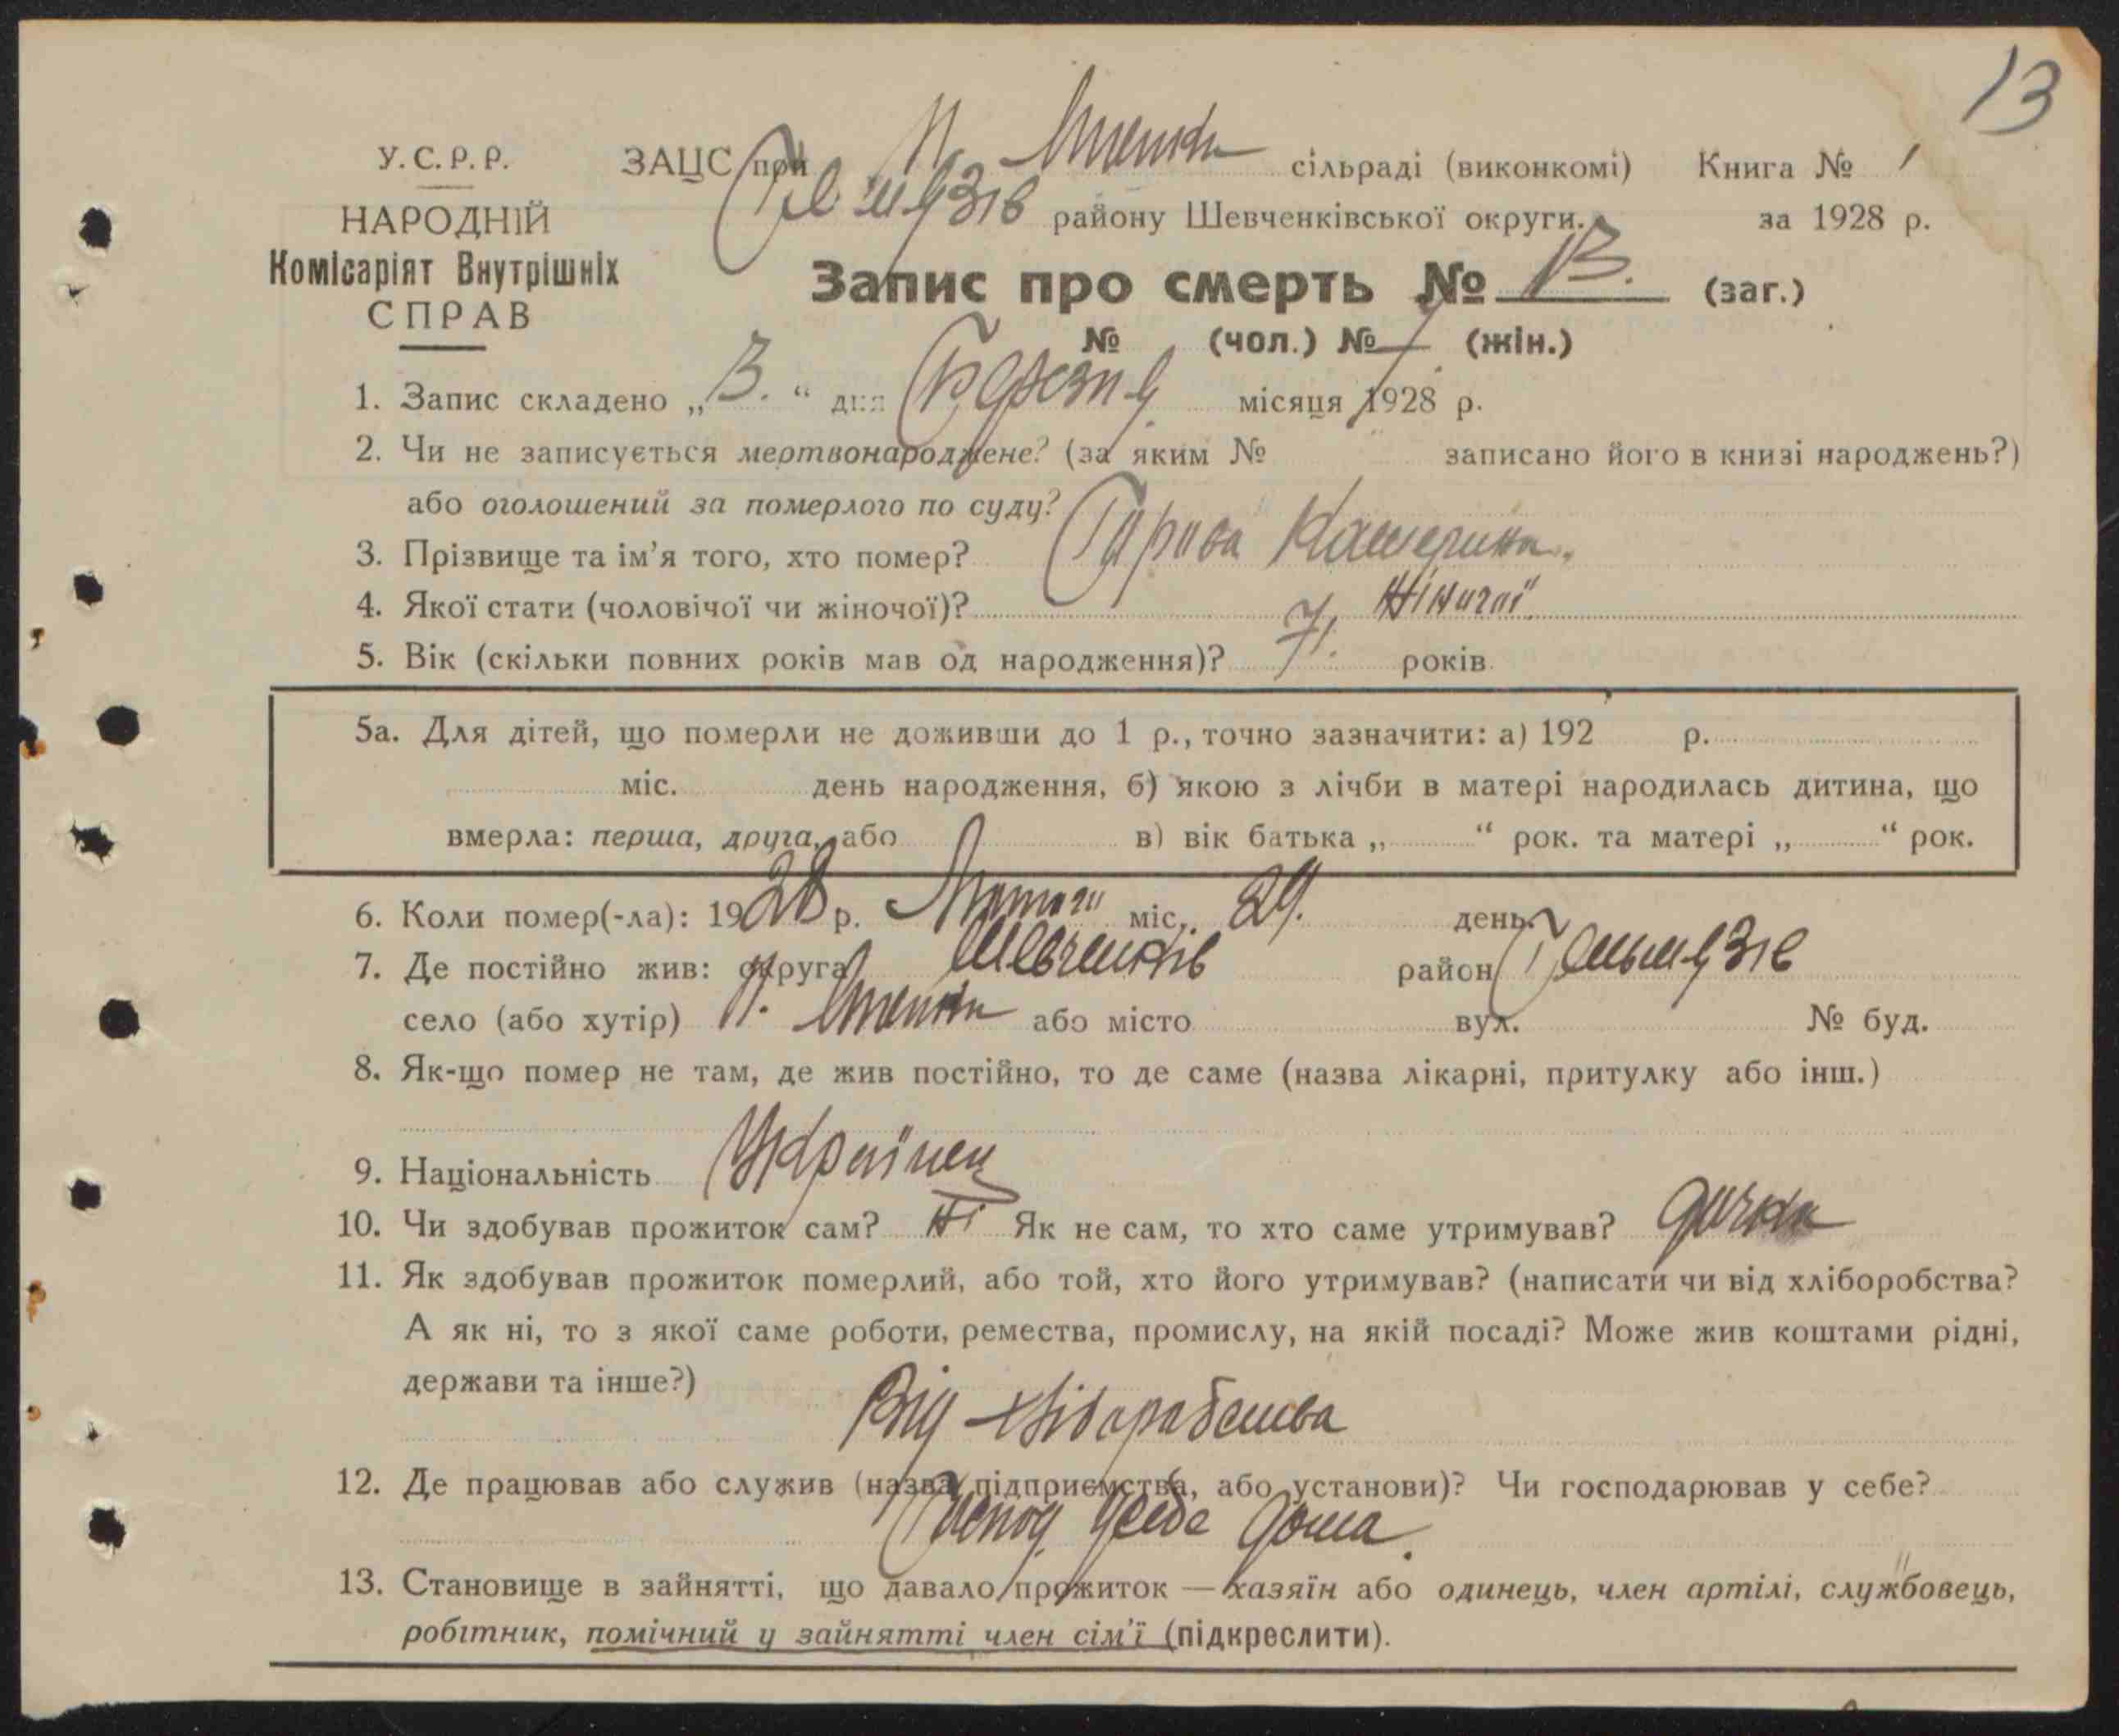 13
У.С.Р.Р.
НАРОДНІЙ
Комісаріят Внутрішніх
СПРАВ
ЗАЦС при П. Степки сільраді (виконкомі) Книга № 1
району Шевченківської округи. за 1928 р.
Запис про смерть № 13. (заг.)
№ (чол.) № 7 (жін.)
1. Запис складено „3.“ дня Березня місяця 1928 р.
2. Чи не записується мертвонароджене? (за яким № записано його в книзі народжень?)
або оголошений за померлого по суду?
3. Прізвище та ім'я того, хто помер? Катерина.
4. Якої стати (чоловічої чи жіночої)? Жіночої
5. Вік (скільки повних років мав од народження)? 71. років
5а. Для дітей, що померли не доживши до 1 р., точно зазначити: а) 192 р.
міс. день народження, б) якою з лічби в матері народилась дитина, що
вмерла: перша, друга, або в) вік батька „ “ рок. та матері „ “ рок.
6. Коли помер(-ла): 1928 р. Лютого міс. 29. день
7. Де постійно жив: округа Шевченків район Гельмязів
село (або хутір) П. Степки або місто вул. № буд.
8. Як-що помер не там, де жив постійно, то де саме (назва лікарні, притулку або інш.)
9. Національність Українец
10. Чи здобував прожиток сам? Ні Як не сам, то хто саме утримував? дочка
11. Як здобував прожиток померлий, або той, хто його утримував? (написати чи від хліборобства?
А як ні, то з якої саме роботи, ремества, промислу, на якій посаді? Може жив коштами рідні,
держави та інше?)
Від хліборобства
12. Де працював або служив (назва підприємства, або установи)? Чи господарював у себе?
Господ. у себе дома.
13. Становище в зайнятті, що давало прожиток — хазяїн або одинець, член артілі, службовець,
робітник, помічний у зайнятті член сім'ї (підкреслити).